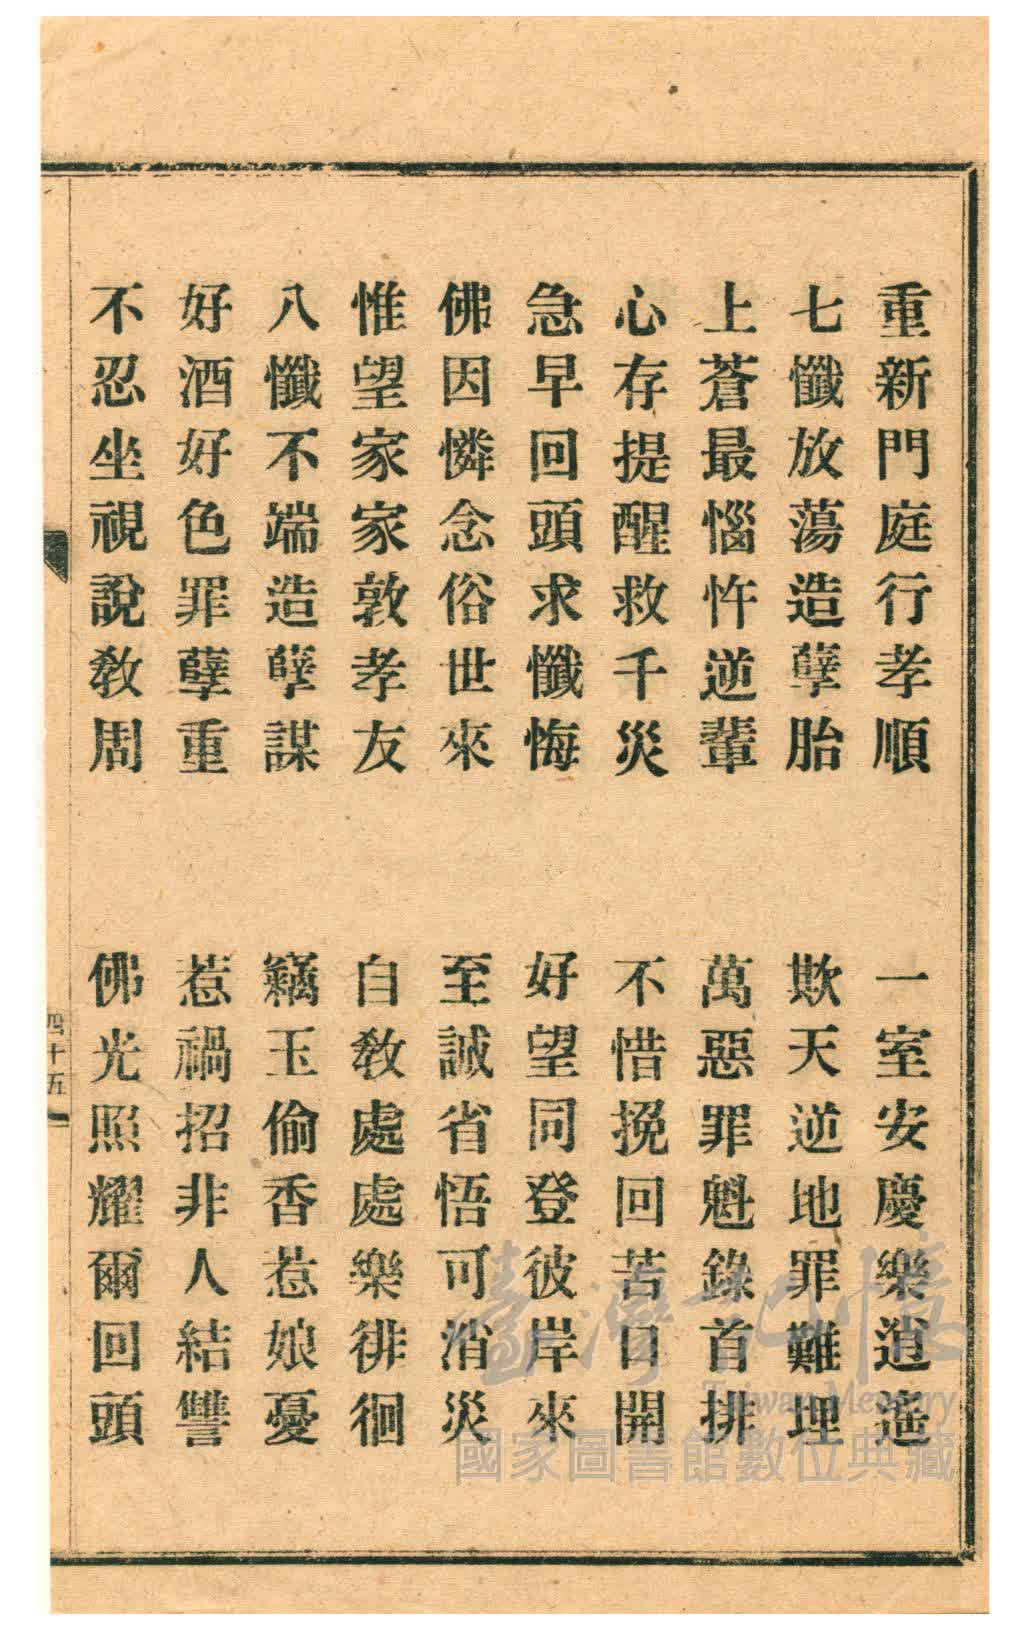 重新門庭行孝順　一室安慶樂逍遙
七懺放蕩造孽胎　欺天逆地罪難理
上蒼最惱忤逆輩　萬惡罪魁錄首排
心存提醒救千災　不惜挽回苦口開
急早回頭求懺悔　好望同登彼岸來
佛因憐念俗世來　至誠省悟可消災
惟望家家敦孝友　自教處處樂徘徊
八懺不端造孽謀　竊玉偷香惹娘憂
好酒好色罪孽重　惹禍招非人結讐
不忍坐視說教周　佛光照耀爾回頭
四十五
臺灣記憶
Taiwan Memory
國家圖書館數位典藏